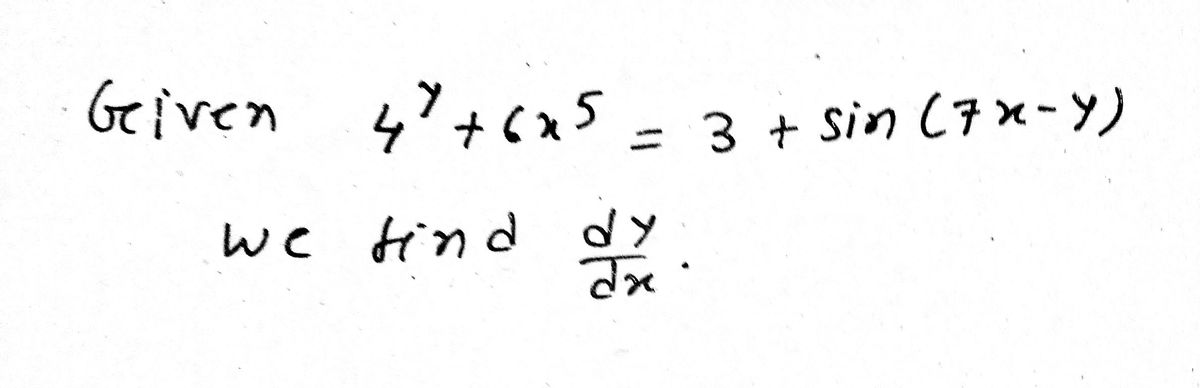 Given 4^y + 6x^5 = 3 + sin (7x-y)
we find dy/dx.